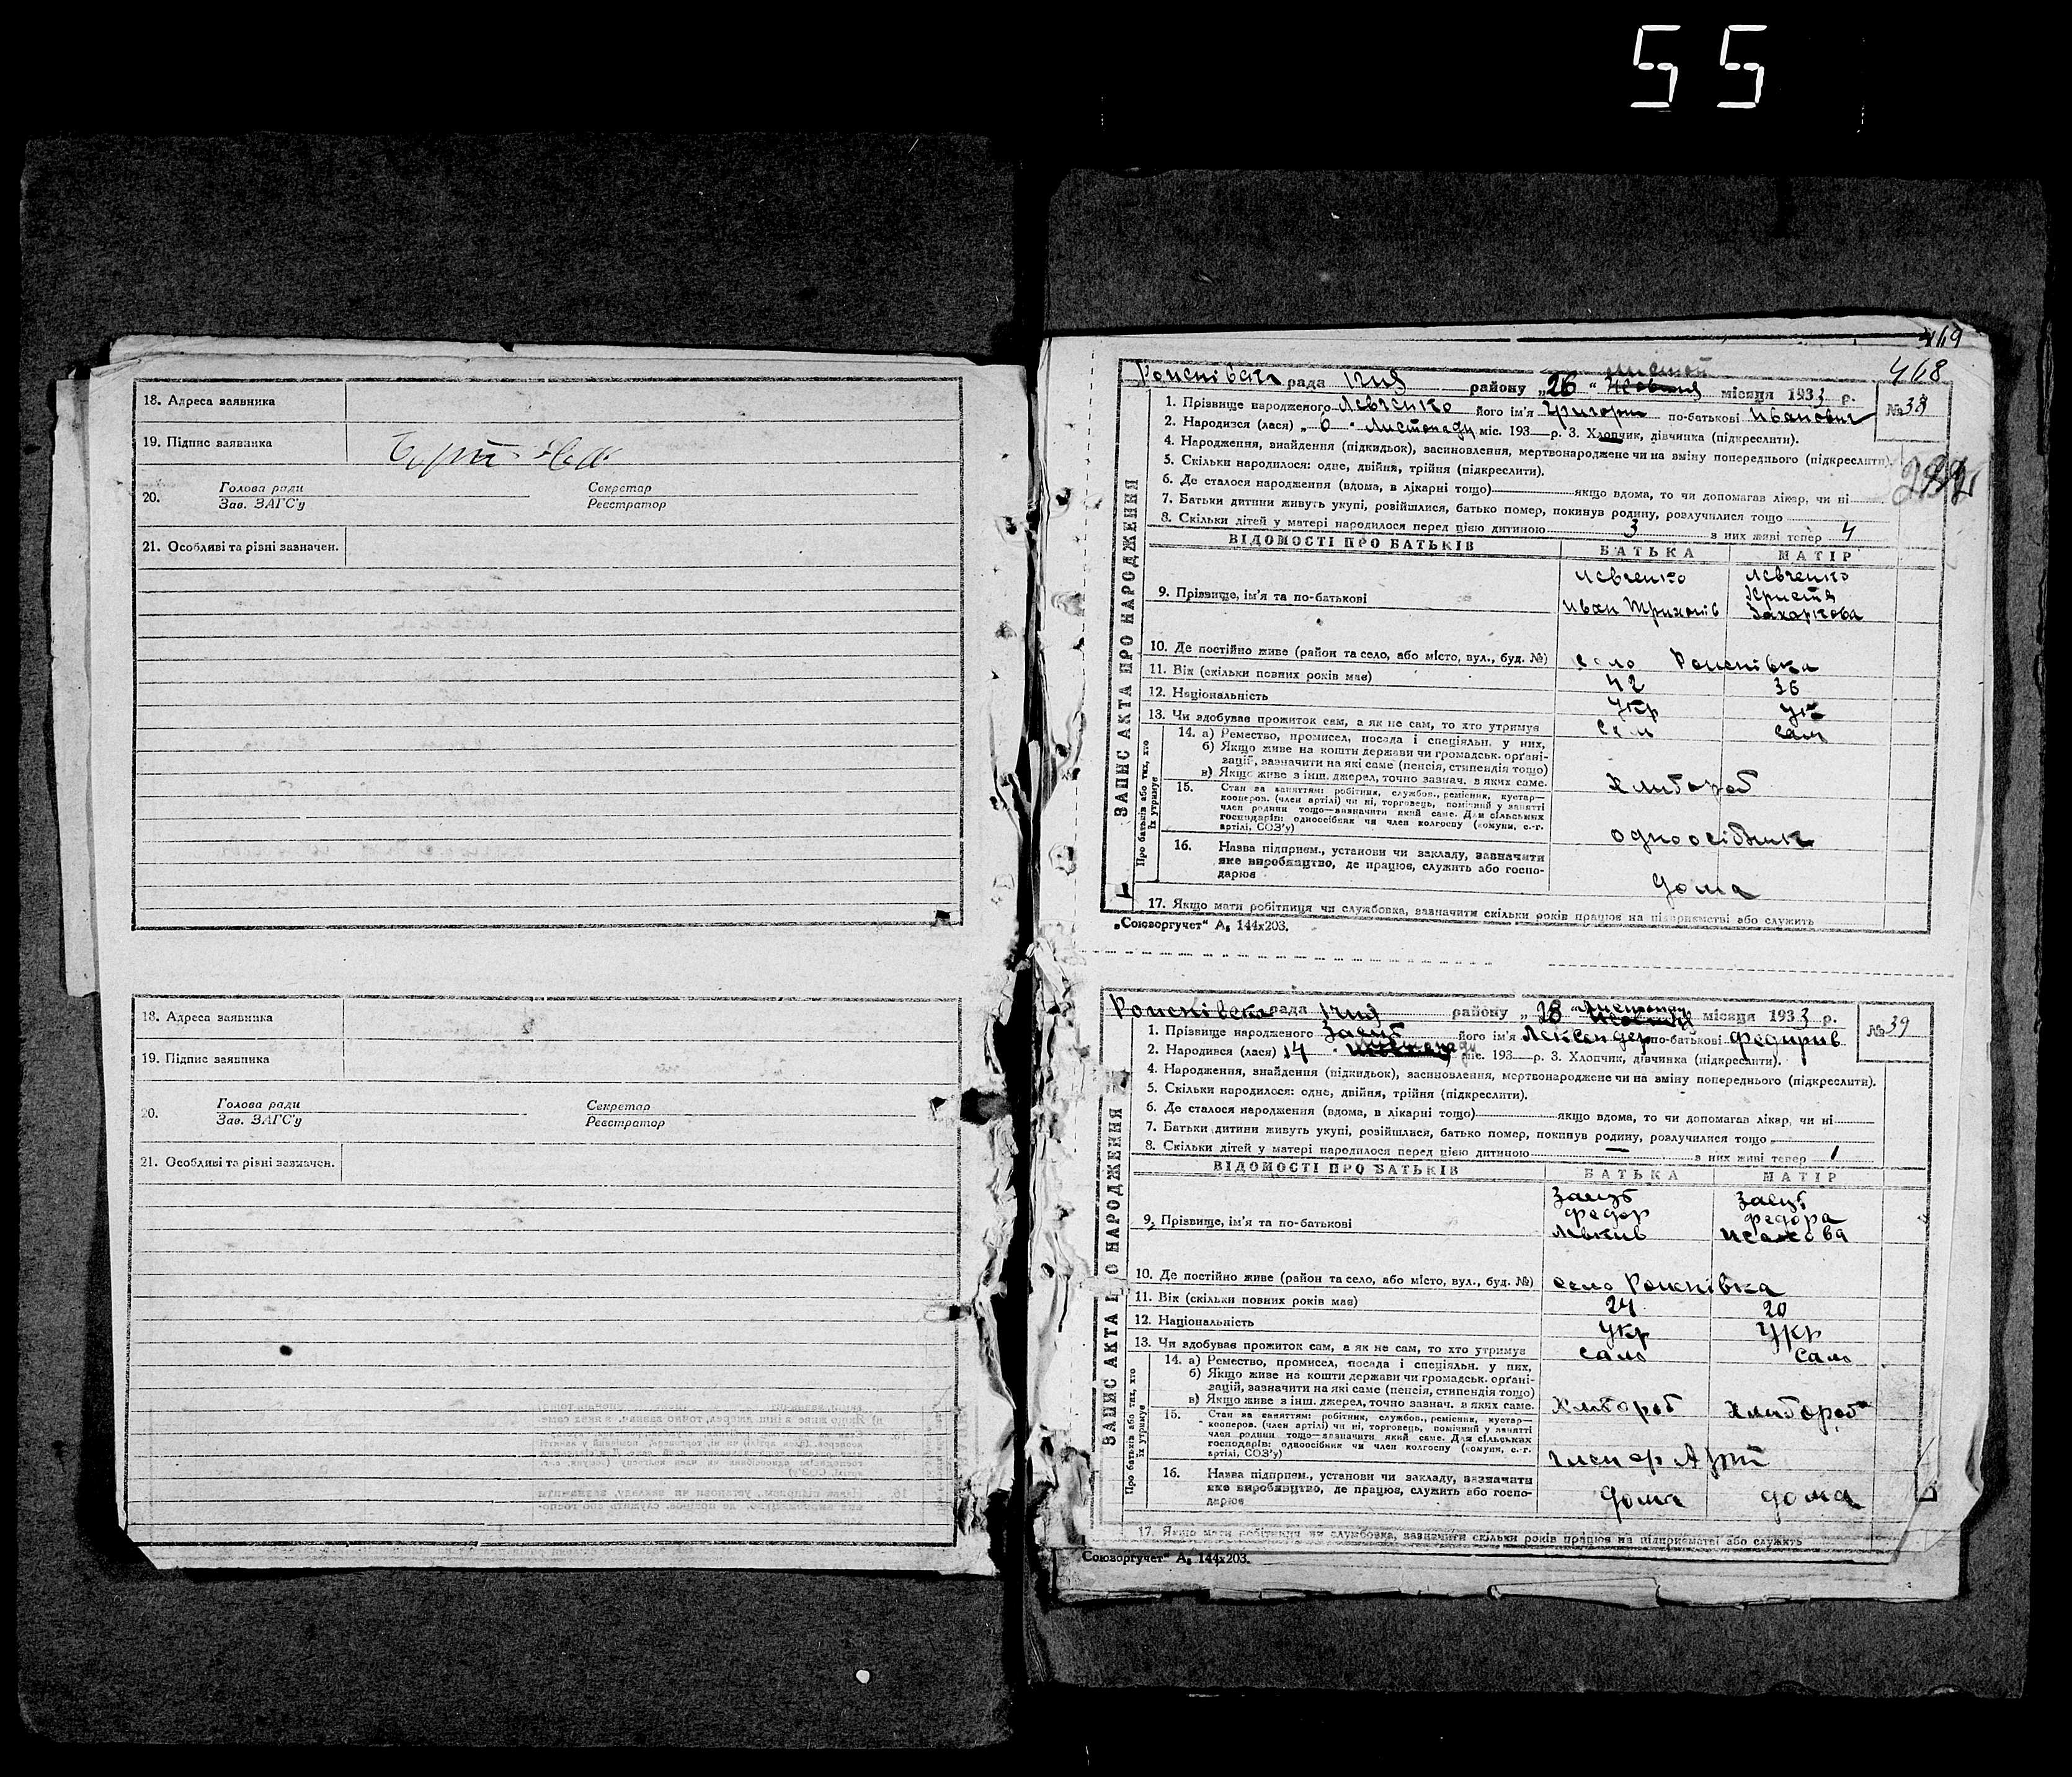 55
18. Адреса заявника
19. Підпис заявника
20. Голова ради Секретар
Зав. ЗАГС'у Реєстратор
21. Особливі та різні зазначен.
18. Адреса заявника
19. Підпис заявника
20. Голова ради Секретар
Зав. ЗАГС'у Реєстратор
21. Особливі та різні зазначен.
469
468
рада району „26“ місяця 1933 р.
№ 38
1. Прізвище народженого Левченко його ім'я Григорий по-батькові Иванович
2. Народився (лася) „6“ Листопаду міс. 193 р. 3. Хлопчик, дівчинка (підкреслити).
4. Народження, знайдення (підкидьок), засиновлення, мертвонароджене чи на зміну попереднього (підкреслити).
5. Скільки народилося: одне, двійня, трійня (підкреслити).
6. Де сталося народження (вдома, в лікарні тощо) якщо вдома, то чи допомагав лікар, чи ні
7. Батьки дитини живуть укупі, розійшлися, батько помер, покинув родину, розлучилися тощо
8. Скільки дітей у матері народилося перед цією дитиною 3 з них живі тепер 4
ВІДОМОСТІ ПРО БАТЬКІВ БАТЬКА МАТІР
ЗАПИС АКТА ПРО НАРОДЖЕННЯ
9. Прізвище, ім'я та по-батькові
Левченко Левченко
Иван Трихонів Христя
Захаркова
10. Де постійно живе (район та село, або місто, вул., буд. №) село Рожнівка
11. Вік (скільки повних років має) 42 36
12. Національність Укр Ук
13. Чи здобуває прожиток сам, а як не сам, то хто утримує сам сам
Про батьків або тих, хто їх утримує
14. а) Ремество, промисел, посада і спеціяльн. у них,
б) Якщо живе на кошти держави чи громадськ. орґані-
зації, зазначити на які саме (пенсія, стипендія тощо)
в) Якщо живе з інш. джерел, точно зазнач. з яких саме.
Хлибороб
15. Стан за заняттям: робітник, службов., ремісник, кустар—
кооперов. (член артілі) чи ні, торговець, помічний у занятті
член родини тощо—зазначити який саме. Для сільських
господарів: одноосібник чи член колгоспу (комуни, с.-г.
артілі, СОЗ'у)
одноосібник
16. Назва підприєм., установи чи закладу, зазначити
яке виробництво, де працює, служить або госпо-
дарює
дома
17. Якщо мати робітниця чи службовка, зазначити скільки років працює на підприємстві або служить
„Союзоргучет“ А₅ 144х203.
рада району „28“ місяця 1933 р.
№ 39
1. Прізвище народженого Заець його ім'я Лександер по-батькові Федирив
2. Народився (лася) 14 міс. 193 р. 3. Хлопчик, дівчинка (підкреслити).
4. Народження, знайдення (підкидьок), засиновлення, мертвонароджене чи на зміну попереднього (підкреслити).
5. Скільки народилося: одне, двійня, трійня (підкреслити).
6. Де сталося народження (вдома, в лікарні тощо) якщо вдома, то чи допомагав лікар, чи ні
7. Батьки дитини живуть укупі, розійшлися, батько помер, покинув родину, розлучилися тощо
8. Скільки дітей у матері народилося перед цією дитиною — з них живі тепер 1
ВІДОМОСТІ ПРО БАТЬКІВ БАТЬКА МАТІР
ЗАПИС АКТА П О НАРОДЖЕННЯ
9. Прізвище, ім'я та по-батькові
Заець Заець
Федор Федора
Левкив Исакова
10. Де постійно живе (район та село, або місто, вул., буд. №) село Рожнівка
11. Вік (скільки повних років має) 24 20
12. Національність Укр Укр
13. Чи здобуває прожиток сам, а як не сам, то хто утримує само само
Про батьків або тих, хто їх утримує
14. а) Ремество, промисел, посада і спеціяльн. у них,
б) Якщо живе на кошти держави чи громадськ. орґані-
зацій, зазначити на які саме (пенсія, стипендія тощо)
в) Якщо живе з інш. джерел, точно зазнач. з яких саме.
Хлибороб Хлибороб
15. Стан за заняттям: робітник, службов., ремісник, кустар—
кооперов. (член артілі) чи ні, торговець, помічний у занятті
член родини тощо—зазначити який саме. Для сільських
господарів: одноосібник чи член колгоспу (комуни, с.-г.
артілі, СОЗ'у)
16. Назва підприєм., установи чи закладу, зазначити
яке виробництво, де працює, служить або госпо-
дарює
дома дома
17. Якщо мати робітниця чи службовка, зазначити скільки років працює на підприємстві або служить
Союзоргучет“ А₅ 144х203.